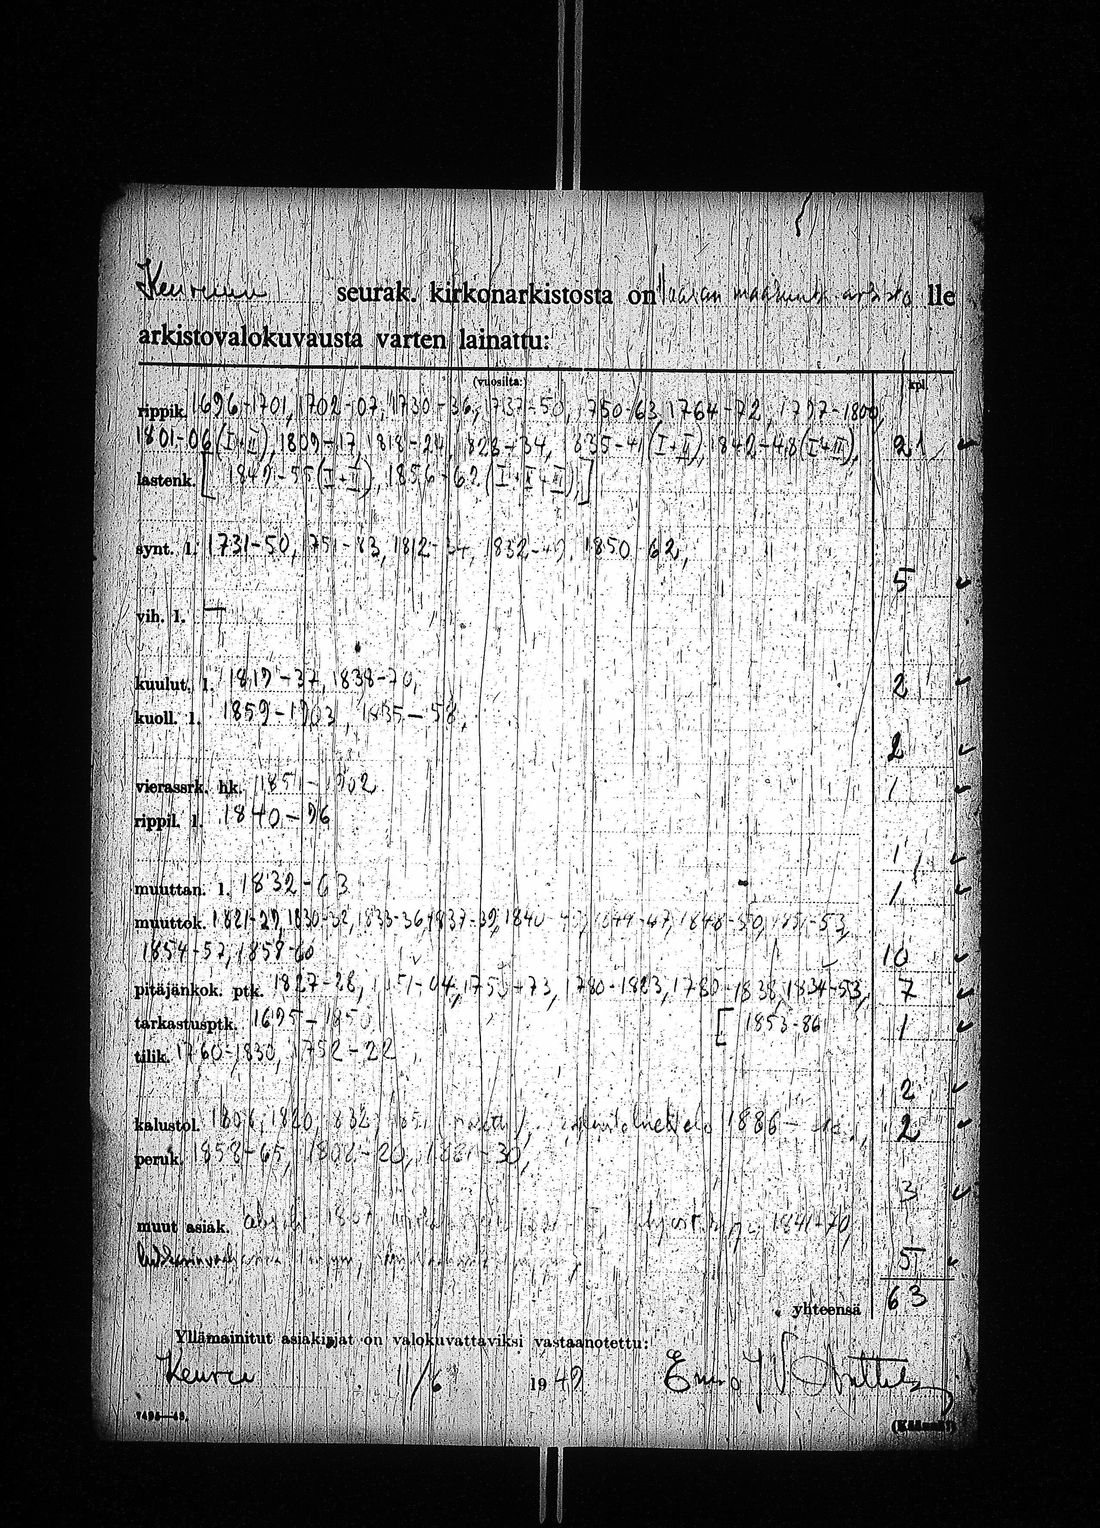 Keuruun seurak. kirkonarkistosta on Vaasan maakunta-arkisto lle
arkistovalokuvausta varten lainattu:
(vuosilta: kpl.
rippik. 1696-1701, 1702-07, 1730-36, 1737-50, 1750-63, 1764-72, 1797-1800,
1801-06 (I+II), 1809-17, 1818-24, 1828-34, 1835-41 (I+II), 1842-48 (I+II), 21 ✓
lastenk. [ 1849-55 (I+II), 1856-62 (I+II+III), ]
synt. l. 1731-50, 1751-83, 1812-31, 1832-49, 1850-62,
5 ✓
vih. l. —
kuulut. l. 1819-37, 1838-70, 2 ✓
kuoll. l. 1859-1903, 1835-58,
2 ✓
vierassrk. hk. 1851-1902 1 ✓
rippil. l. 1840-96
1 ✓
muuttan. l. 1832-63 1 ✓
muuttok. 1821-29, 1830-32, 1833-36, 1837-39, 1840- 1844-47, 1848-50, 1851-53,
1854-57, 1858-60 10 ✓
pitäjänkok. ptk. 1827-28, 1753-73, 1780-1823, 1834-53, 7 ✓
tarkastusptk. 1695-1850 [ 1853-86 1 ✓
tilik. 1760-1830, 1752-22
2 ✓
kalustol. 1806, 1820, 1832, 1886- 2 ✓
peruk. 1858-65, 1802-20, 1821-30,
3 ✓
muut asiak. 1841-70,
5 ✓
yhteensä 63
Yllämainitut asiakirjat on valokuvattaviksi vastaanotettu:
Keuru 11/6 1949
7494—48.
(Käännä!)